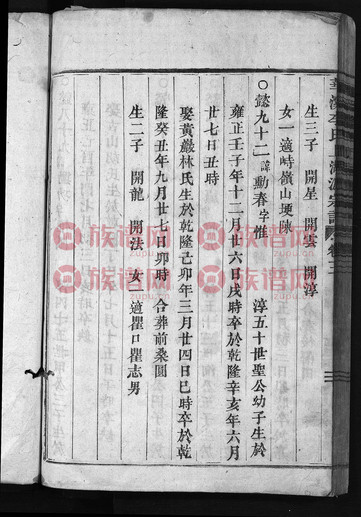 生三子 開星 開雲 開淳
女一適峙嶺山埂陳
○懿九十二諱勳春字惟 淳五十世聖公幼子生於
雍正壬子年十二月廿六日戌時卒於乾隆辛亥年六月
廿七日丑時
娶黃巖林氏生於乾隆己卯年三月廿四日巳時卒於乾
隆癸丑年九月廿七日卯時 合葬前桑園
生二子 開龍 開法 女一適瞿口瞿志男
族谱网